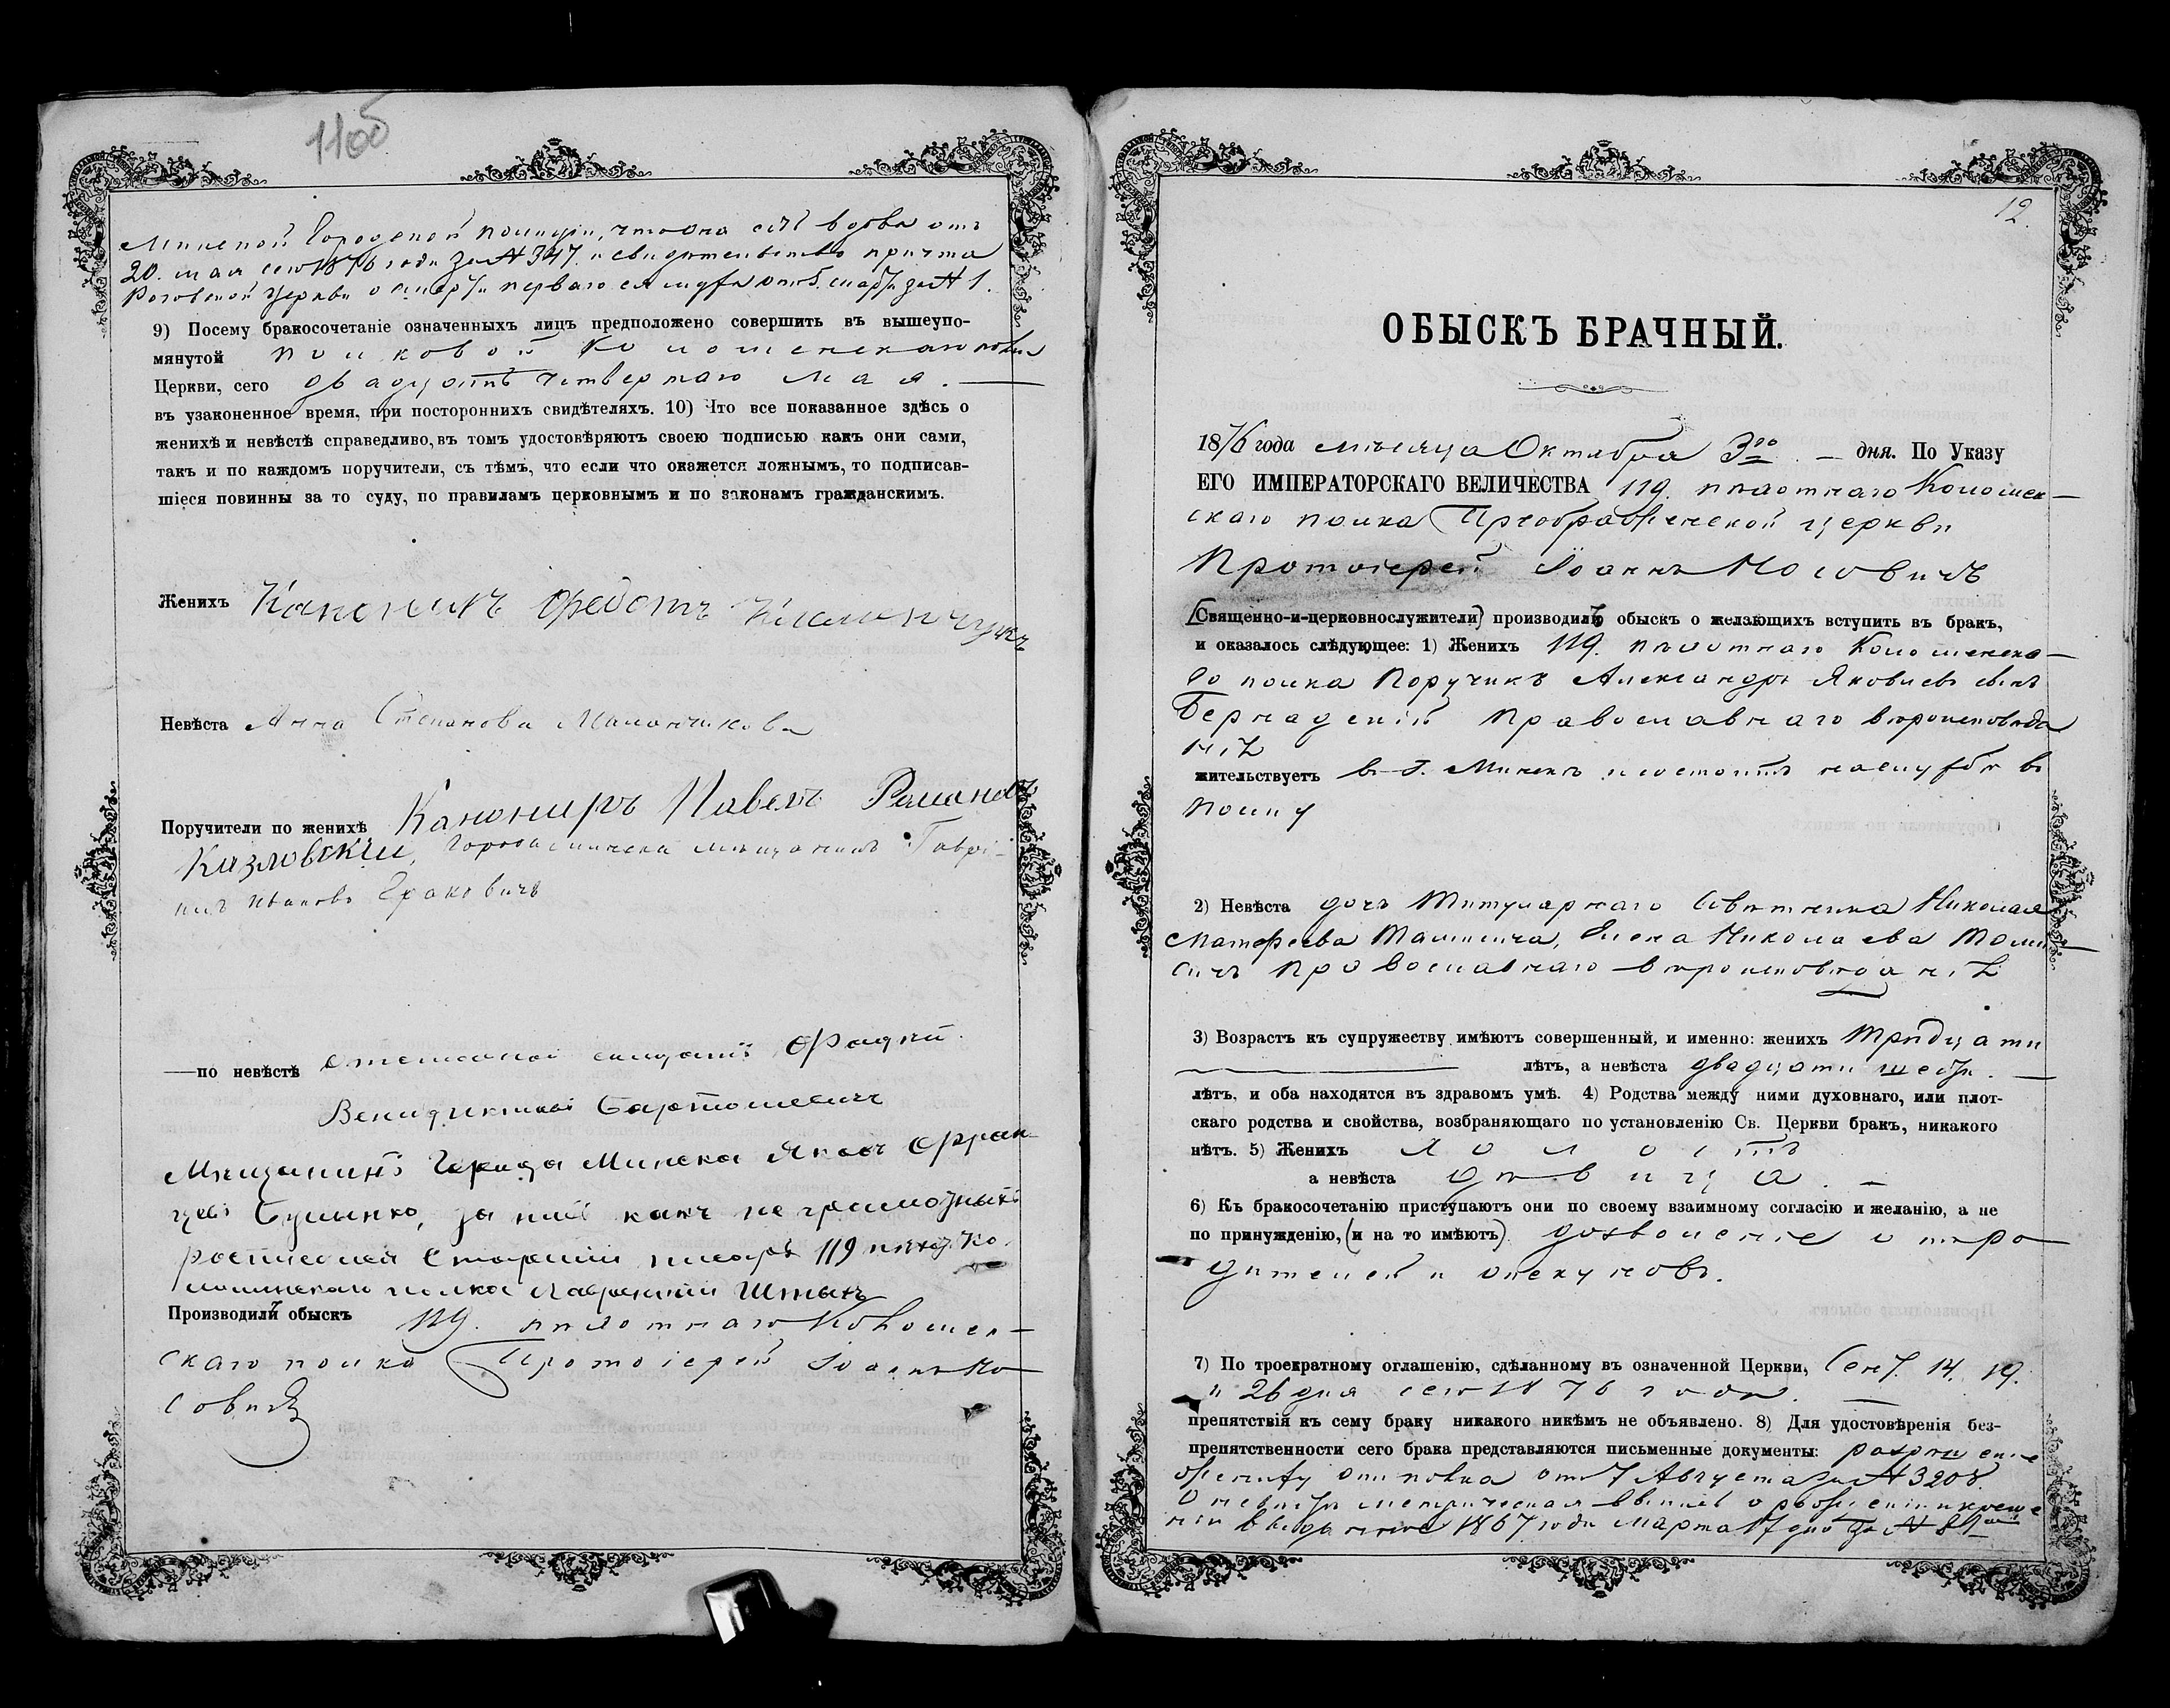 11об
Минской Городской полиціи, что она есть вдова отъ
20. мая сего 1876 года за № 347. и свидетельство причта
церкви о смерти перваго ея мужа за № 1.
9) Посему бракосочетаніе означенныхъ лицъ предположено совершить въ вышеупо-
мянутой полковой Коломенскаго полка
Церкви, сего двадцать четвертаго мая.
въ узаконенное время, при постороннихъ свидѣтеляхъ. 10) Что все показанное здѣсь о
женихѣ и невѣстѣ справедливо, въ томъ удостовѣряютъ своею подписью какъ они сами,
такъ и по каждомъ поручители, съ тѣмъ, что если что окажется ложнымъ, то подписав-
шіеся повинны за то суду, по правиламъ церковнымъ и по законамъ гражданскимъ.
Женихъ Федотъ Климинчукъ
Невѣста Анна Степанова
Поручители по женихѣ Канониръ Павелъ Романовъ
Казловскій, Города Минска мѣщанинъ Гаврі-
илъ Ивановъ
— по невѣстѣ
Бартошевич
Мѣщанинъ Города Минска Яковъ Фран-
цев за ний какъ не грамотныхъ
росписался Старший писарь 119 пѣхот. Ко-
ломенскаго полка Лаврентий
Производилъ обыскъ 119. пѣхотнаго Коломен-
скаго полка Протоіерей Іоаннъ Но
совичъ
12.
ОБЫСКЪ БРАЧНЫЙ.
1876 года мѣсяца Октября 3го — дня. По Указу
ЕГО ИМПЕРАТОРСКАГО ВЕЛИЧЕСТВА 119. пѣхотнаго Коломен-
скаго полка Преображенской церкви
Протоіерей Іоаннъ Носовичъ
(Священно-и-церковнослужители) производилъ обыскъ о желающихъ вступить въ бракъ,
и оказалось слѣдующее: 1) Женихъ 119. пѣхотнаго Коломенска-
го полка Поручикъ Александръ Яковлевъ сынъ
Бернадскій православнаго вѣроисповѣда
нія
жительствуетъ в г. Минскѣ и состоитъ на службѣ въ
полку
2) Невѣста дочь Титулярнаго Совѣтника Николая
Матфеева Елена Николаева
православнаго вѣроисповѣданія
3) Возрастъ къ супружеству имѣютъ совершенный, и именно: женихъ тридцати
лѣтъ, а невѣста двадцати шести. —
лѣтъ, и оба находятся въ здравомъ умѣ. 4) Родства между ними духовнаго, или плот-
скаго родства и свойства, возбраняющаго по установленію Св. Церкви бракъ, никакого
нѣтъ. 5) Женихъ холостъ
а невѣста дѣвица. —
6) Къ бракосочетанію приступаютъ они по своему взаимному согласію и желанію, а не
по принужденію, (и на то имѣютъ) дозволеніе о тъ ро
дителей и опекуновъ.
7) По троекратному оглашенію, сдѣланному въ означенной Церкви, Сент. 14. 19.
и 26 дня сего 1876 года. —
препятствія къ сему браку никакого никѣмъ не объявлено. 8) Для удостовѣренія без-
препятственности сего брака представляются письменные документы: разрѣшеніе
жениху отъ полка отъ 7 Августа за № 3208.
О невѣстѣ метрическая о рожденіи и креще
ніи выданное 1867 года Марта 17 дня за № 81